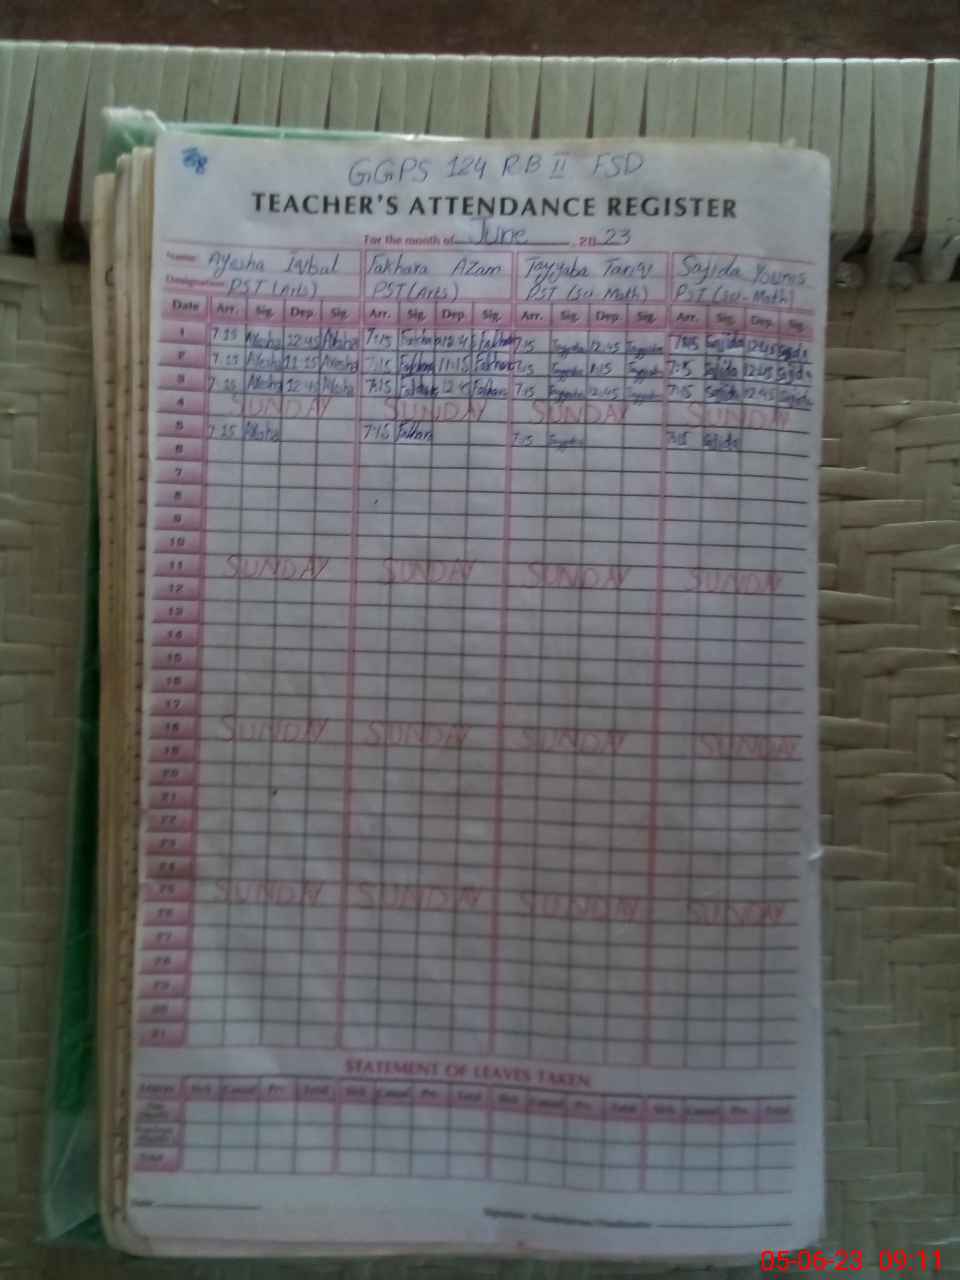 GGPS 124 RB II FSD
TEACHER'S ATTENDANCE REGISTER
For the month of June, 2023
Name Ayesha Iqbal Fakhara Azam Tayyaba Tariq Sajida Younis
Designation PST (Arts) PST (Arts) PST (Sci-Math) PST (Sci-Math)
Date Arr. Sig. Dep. Sig. Arr. Sig. Dep. Sig. Arr. Sig. Dep. Sig. Arr. Sig. Dep. Sig.
1 7:15 Ayesha 12:45 Ayesha 7:15 Fakhara 12:45 Fakhara 7:15 Tayyaba 12:45 Tayyaba 7:15 Sajida 12:45 Sajida
2 7:15 Ayesha 11:15 Ayesha 7:15 Fakhara 11:15 Fakhara 7:15 Tayyaba 11:15 Tayyaba 7:15 Sajida Sajida
3 7:15 Ayesha 12:45 Ayesha 7:15 Fakhara 12:45 Fakhara 7:15 Tayyaba 12:45 Tayyaba 7:15 Sajida 12:45 Sajida
4 SUNDAY SUNDAY SUNDAY SUNDAY
5 7:15 Ayesha 7:15 Fakhara 7:15 Tayyaba 7:15 Sajida
6
7
8
9
10
11 SUNDAY SUNDAY SUNDAY SUNDAY
12
13
14
15
16
17
18 SUNDAY SUNDAY SUNDAY SUNDAY
19
20
21
22
23
24
25 SUNDAY SUNDAY SUNDAY SUNDAY
26
27
28
29
30
31
STATEMENT OF LEAVES TAKEN
Leaves Sick Casual Prv. Total Sick Casual Prv. Total Sick Casual Prv. Total Sick Casual Prv. Total
Total
Date
05-06-23 09:11